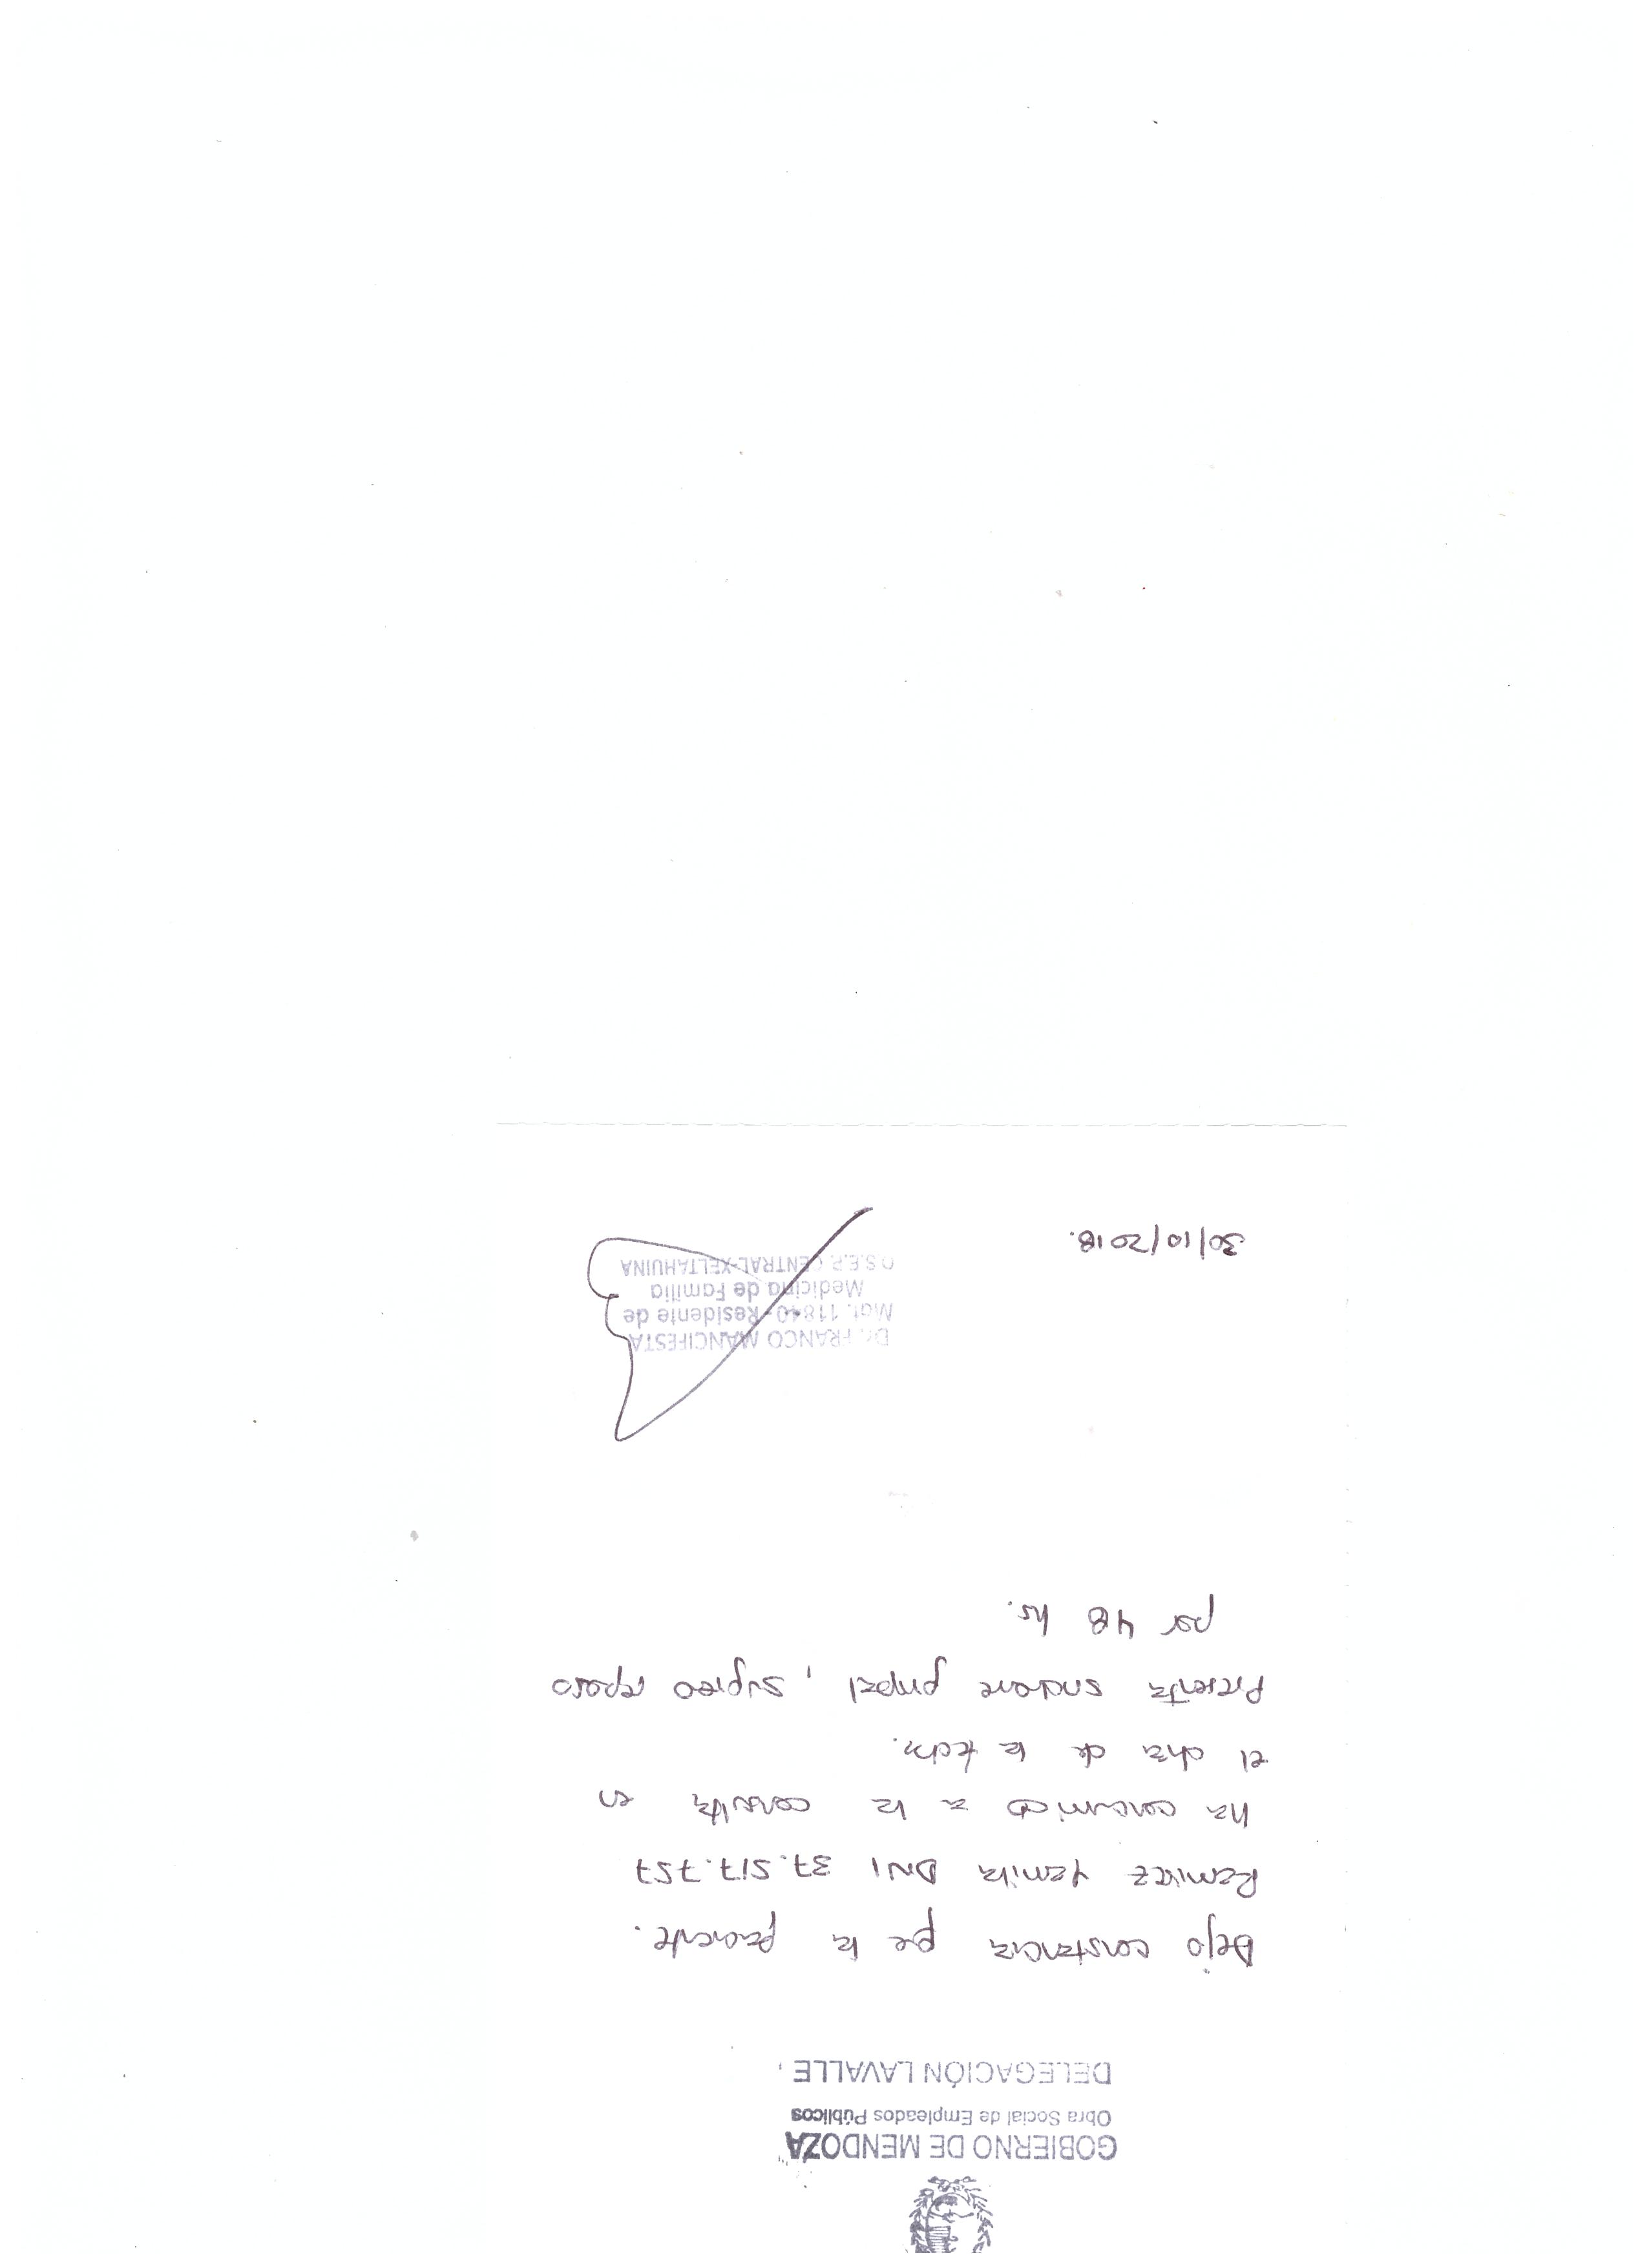 GOBIERNO DE MENDOZA
Obra Social de Empleados Públicos
DELEGACIÓN LAVALLE
Dejo constancia que la paciente.
Ramirez Yamila DNI 37.517.757
ha concurrido a la consulta en
el dia de la fecha.
Presenta sindrome gripal, sugiero reposo
por 48 hs.
Dr. FRANCO MANCIFESTA
Mat. 11840 - Residente de
Medicina de Familia
O.S.E.P. CENTRAL-XELTAHUINA
30/10/2018.